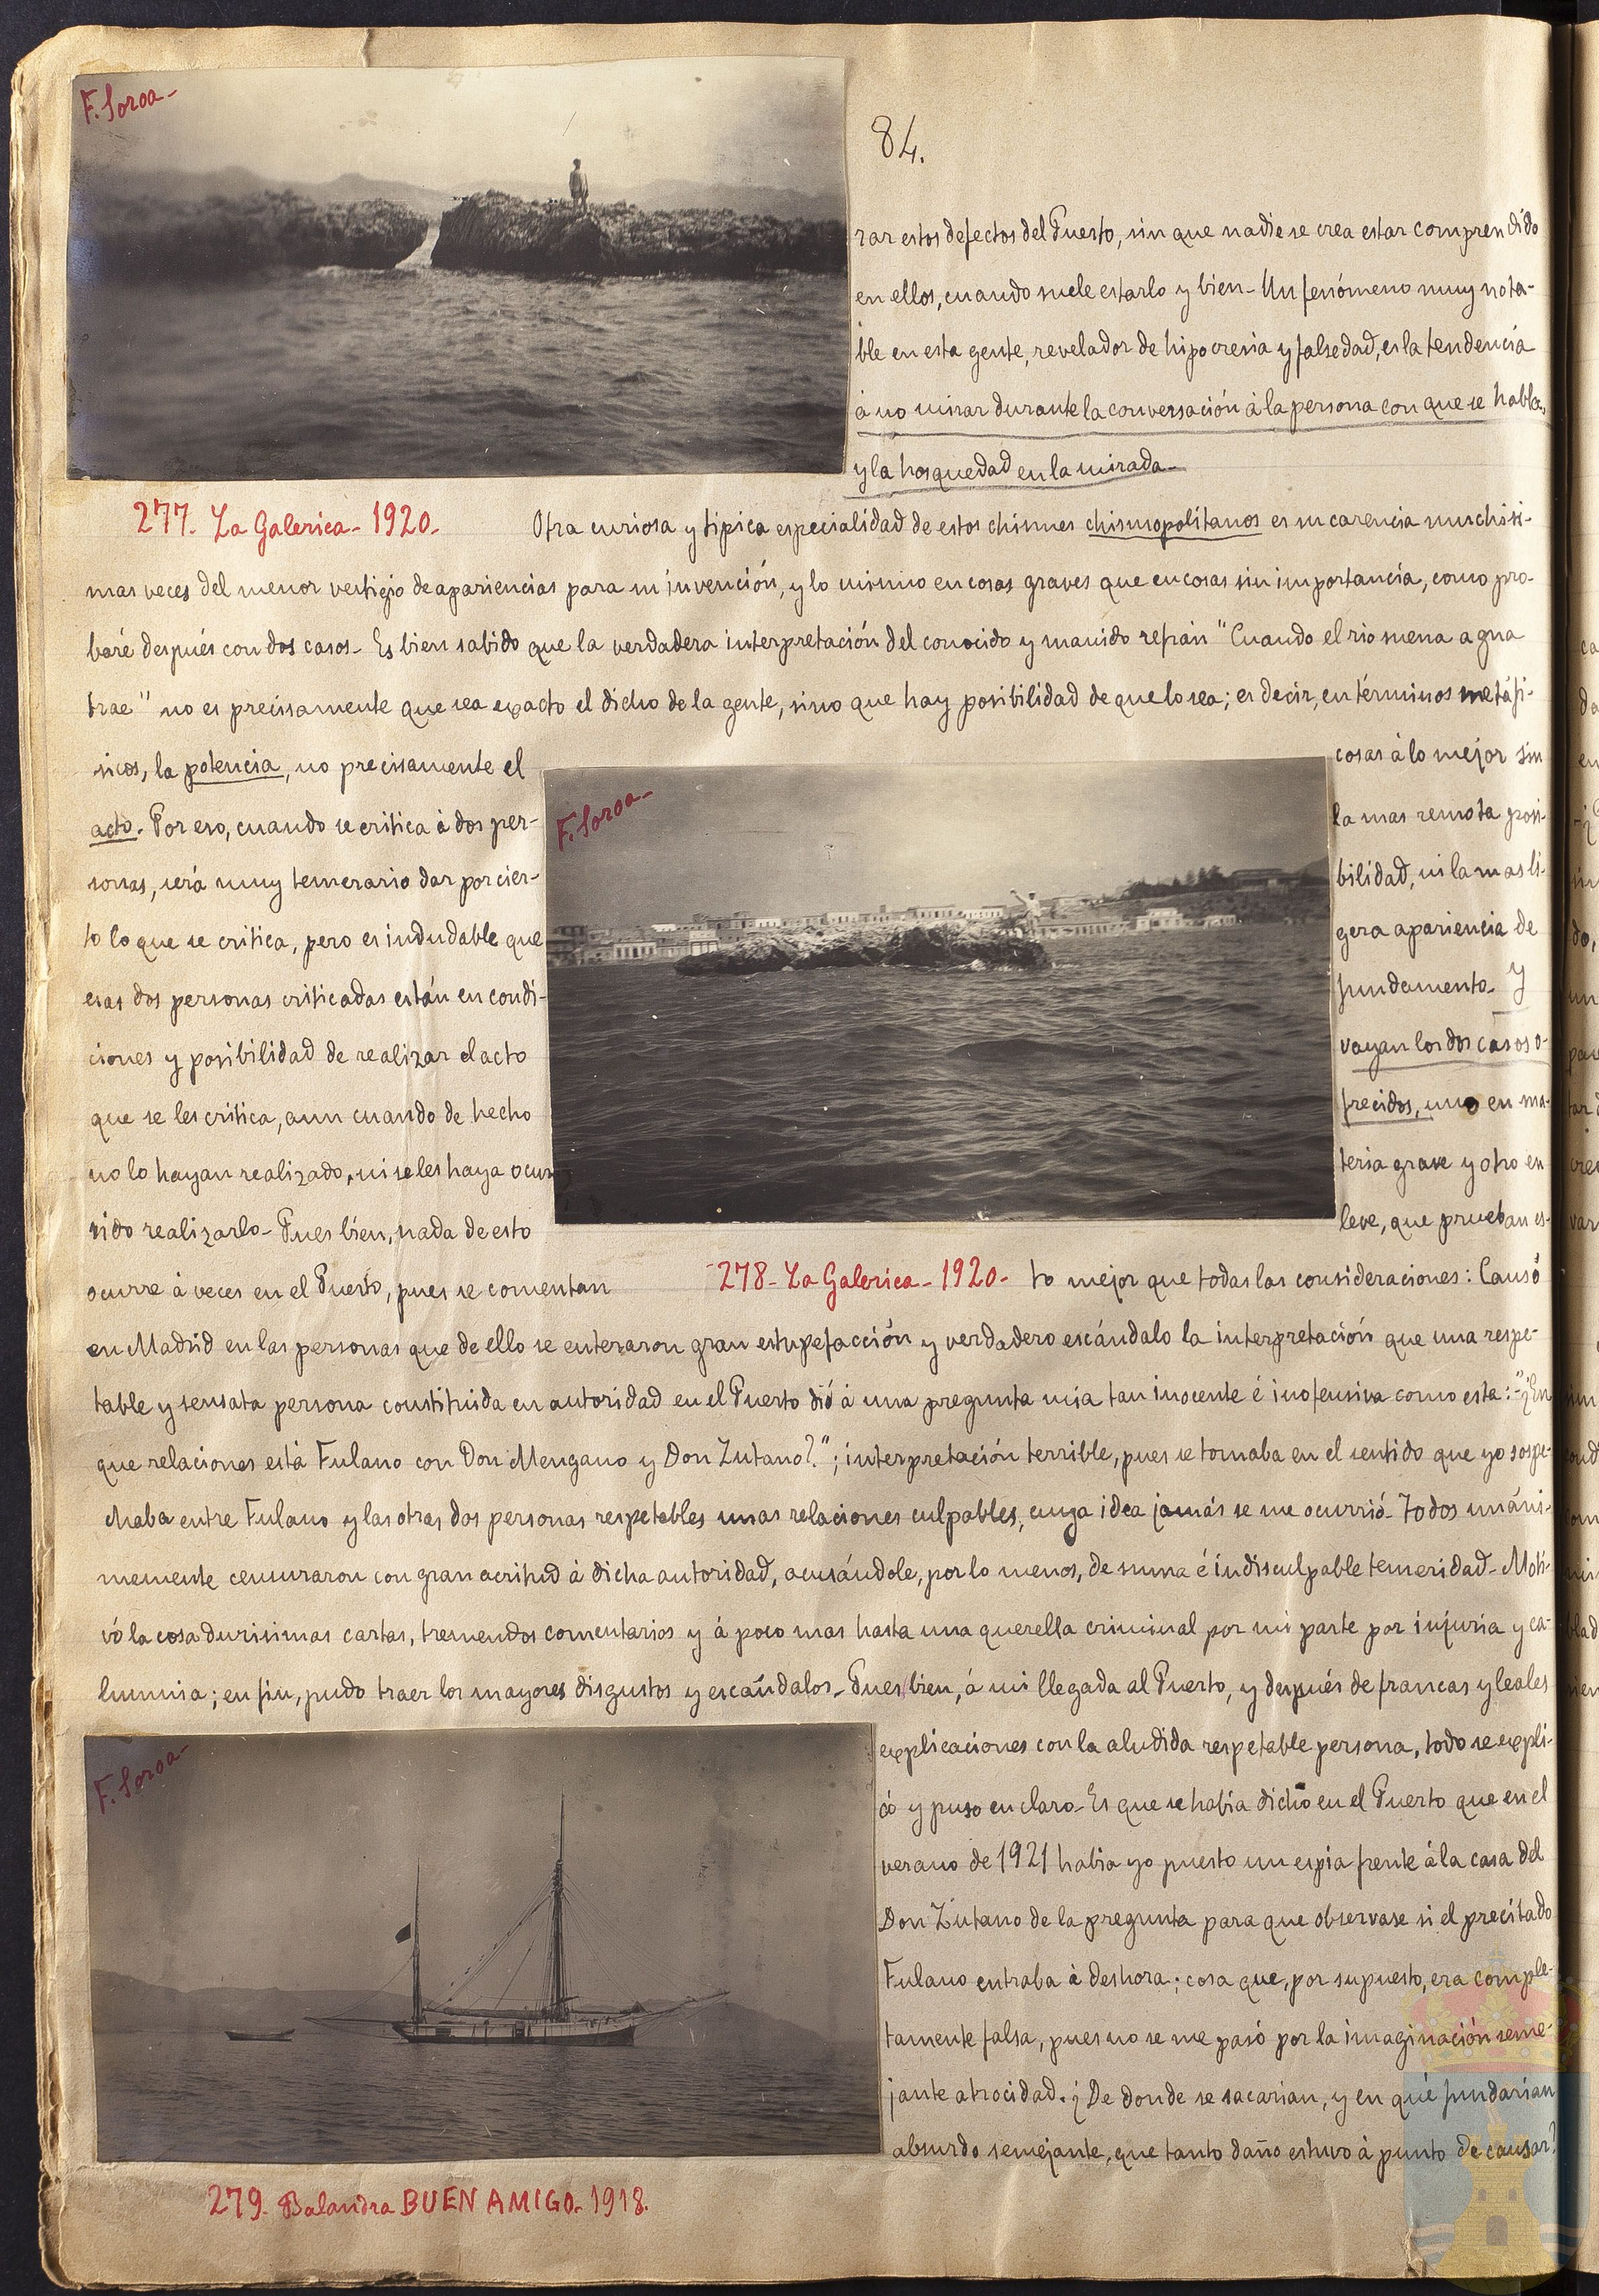 F. Soroa-
84.
rar estos defectos del Puerto, sin que nadie se crea estar comprendido
en ellos, cuando suele estarlo y bien- Un fenómeno muy nota-
ble en esta gente, revelador de hipocresia y falsedad, es la tendencia
á no mirar durante la conversación á la persona con que se habla,
y la hosquedad en la mirada-
277- La Galerica- 1920-
Otra curiosa y tipica especialidad de estos chismes chismopolitanos es su carencia muchisi-
mas veces del menor vestigio de apariencias para su invención, y lo mismo en cosas graves que en cosas sin importancia, como pro-
baré después con dos casos- Es bien sabido que la verdadera interpretación del conocido y manido refrán "Cuando el rio suena agua
trae" no es precisamente que sea exacto el dicho de la gente, sino que hay posibilidad de que lo sea; es decir, en términos metáfi-
sicos, la potencia, no precisamente el
acto- Por eso, cuando se critica á dos per-
sonas, será muy temerario dar por cier-
to lo que se critica, pero es indudable que
esas dos personas criticadas están en condi-
ciones y posibilidad de realizar el acto
que se les critica, aun cuando de hecho
no lo hayan realizado, ni se les haya ocur-
rido realizarlo- Pues bien, nada de esto
ocurre á veces en el Puerto, pues se comentan
F. Soroa-
cosas á lo mejor sin
la mas remota posi-
bilidad, ni la mas li-
gera apariencia de
fundamento- Y
vayan los dos casos o-
frecidos, uno en ma-
teria grave y otro en
leve, que prueban es-
278- La Galerica- 1920-
to mejor que todas las consideraciones: Causó
en Madrid en las personas que de ello se enteraron gran estupefacción y verdadero escándalo la interpretación que una respe-
table y sensata persona constituida en autoridad en el Puerto dió á una pregunta mia tan inocente é inofensiva como esta:-"¿En
que relaciones está Fulano con Don Mengano y Don Zutano?"; interpretación terrible, pues se tomaba en el sentido que yo sospe-
chaba entre Fulano y las otras dos personas respetables unas relaciones culpables, cuya idea jamás se me ocurrió- Todos unáni-
memente censuraron con gran acritud á dicha autoridad, acusándole, por lo menos, de suma é indisculpable temeridad- Moti-
vó la cosa durisimas cartas, tremendos comentarios y á poco mas hasta una querella criminal por mi parte por injuria y ca-
lumnia; en fin, pudo traer los mayores disgustos y escándalos- Pues bien, á mi llegada al Puerto, y después de francas y leales
F. Soroa-
explicaciones con la aludida respetable persona, todo se expli-
có y puso en claro- Es que se habia dicho en el Puerto que en el
verano de 1921 habia yo puesto un espia frente á la casa del
Don Zutano de la pregunta para que observase si el precitado
Fulano entraba á deshora; cosa que, por supuesto, era comple-
tamente falsa, pues no se me pasó por la imaginación seme-
jante atrocidad. ¿De donde se sacarian, y en qué fundarian
absurdo semejante, que tanto daño estuvo á punto de causar?
279- Balandra BUEN AMIGO- 1918.